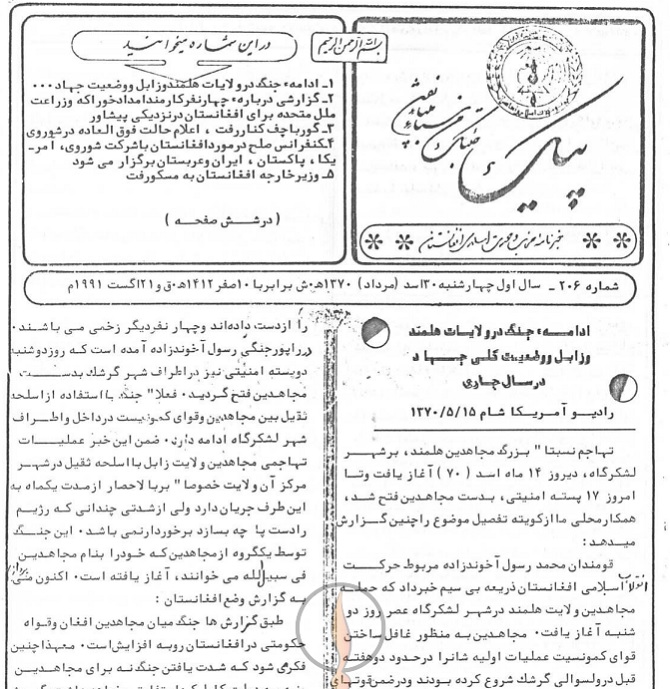 بسم الله الرحمن الرحیم
در این شماره میخوانید
۱ـ ادامهء جنگ در ولایات هلمند وزابل ووضعیت جهاد ۰۰۰
۲ـ گزارشی دربارهء چهارنفرکارمندامدادخوراکه وزراعت
ملل متحده برای افغانستان درنزدیکی پیشاور
۳ـ گورباچف کناررفت ، اعلام حالت فوق العاده درشوروی
۴ـ کنفرانس صلح درموردافغانستان باشرکت شوروی، امر‍ـ
یکا، پاکستان ، ایران وعربستان برگزار می شود
۵ـ وزیرخارجه افغانستان به مسکورفت
( درشش صفحه )
خبرنامه حزب وحدت اسلامی افغانستان
شماره ۲۰۶ ـ سال اول چهارشنبه ۳۰ اسد (مرداد) ۱۳۷۰ه‍.ش برابربا ۱۰صفر ۱۴۱۲ه‍.ق و ۲۱ اگست ۱۹۹۱م
ادامهء جنگ درولایات هلمند
وزابل ووضعیت کلی جهاد
درسال جاری
رادیو آمریکا شام ۱۳۷۰/۵/۱۵
تهاجم نسبتا" بزرگ مجاهدین هلمند، برشهر
لشکرگاه، دیروز ۱۴ ماه اسد ( ۷۰ ) آغاز یافت وتا
امروز ۱۷ پسته امنیتی، بدست مجاهدین فتح شد،
همکارمحلی ماازکویته تفصیل موضوع راچنین گزارش
میدهد :
قومندان محمد رسول آخوندزاده مربوط حرکت
انقلاب اسلامی افغانستان ذریعه بی سیم خبرداد که حمله
مجاهدین ولایت هلمند درشهر لشکرگاه عصر روز دو
شنبه آغاز یافت۰ مجاهدین به منظور غافل ساختن
قوای کمونیست عملیات اولیه شانرا درحدود دوهفته
قبل درولسوالی گرشك شروع کرده بودند ودرضمن قوتهای
را ازدست داده‌اند وچهار نفردیگر زخمی می باشند۰
درراپورجنگی رسول آخوندزاده آمده است که روزدوشنبه
دوپسته امنیتی نیز دراطراف شهر گرشك بدست
مجاهدین فتح گردید۰ فعلا" جنگ با استفاده ازاسلحه
ثقیل بین مجاهدین وقوای کمونیست درداخل واطراف
شهر لشکرگاه ادامه دارد۰ ضمن این خبر عملیات
تهاجمی مجاهدین ولایت زابل بااسلحه ثقیل درشهر
مرکز آن ولایت خصوصا" بربالاحصار ازمدت یکماه به
این طرف جریان دارد ولی ازشدتی چندانی که رژیم
رادست پاچه بسازد برخوردارنمی باشد۰ این جنگ
توسط یکگروه ازمجاهدین که خودرا بنام مجاهدین
فی سبیل‌لله می خوانند، آغاز یافته است۰ اکنون می‌پردازم
به گزارش وضع افغانستان :
طبق گزارش ها جنگ میان مجاهدین افغان وقواه
حکومتی درافغانستان روبه افزایش‌است۰ معهذاچنین
فکرمی شود که شدت یافتن جنگ نه برای مجاهدین